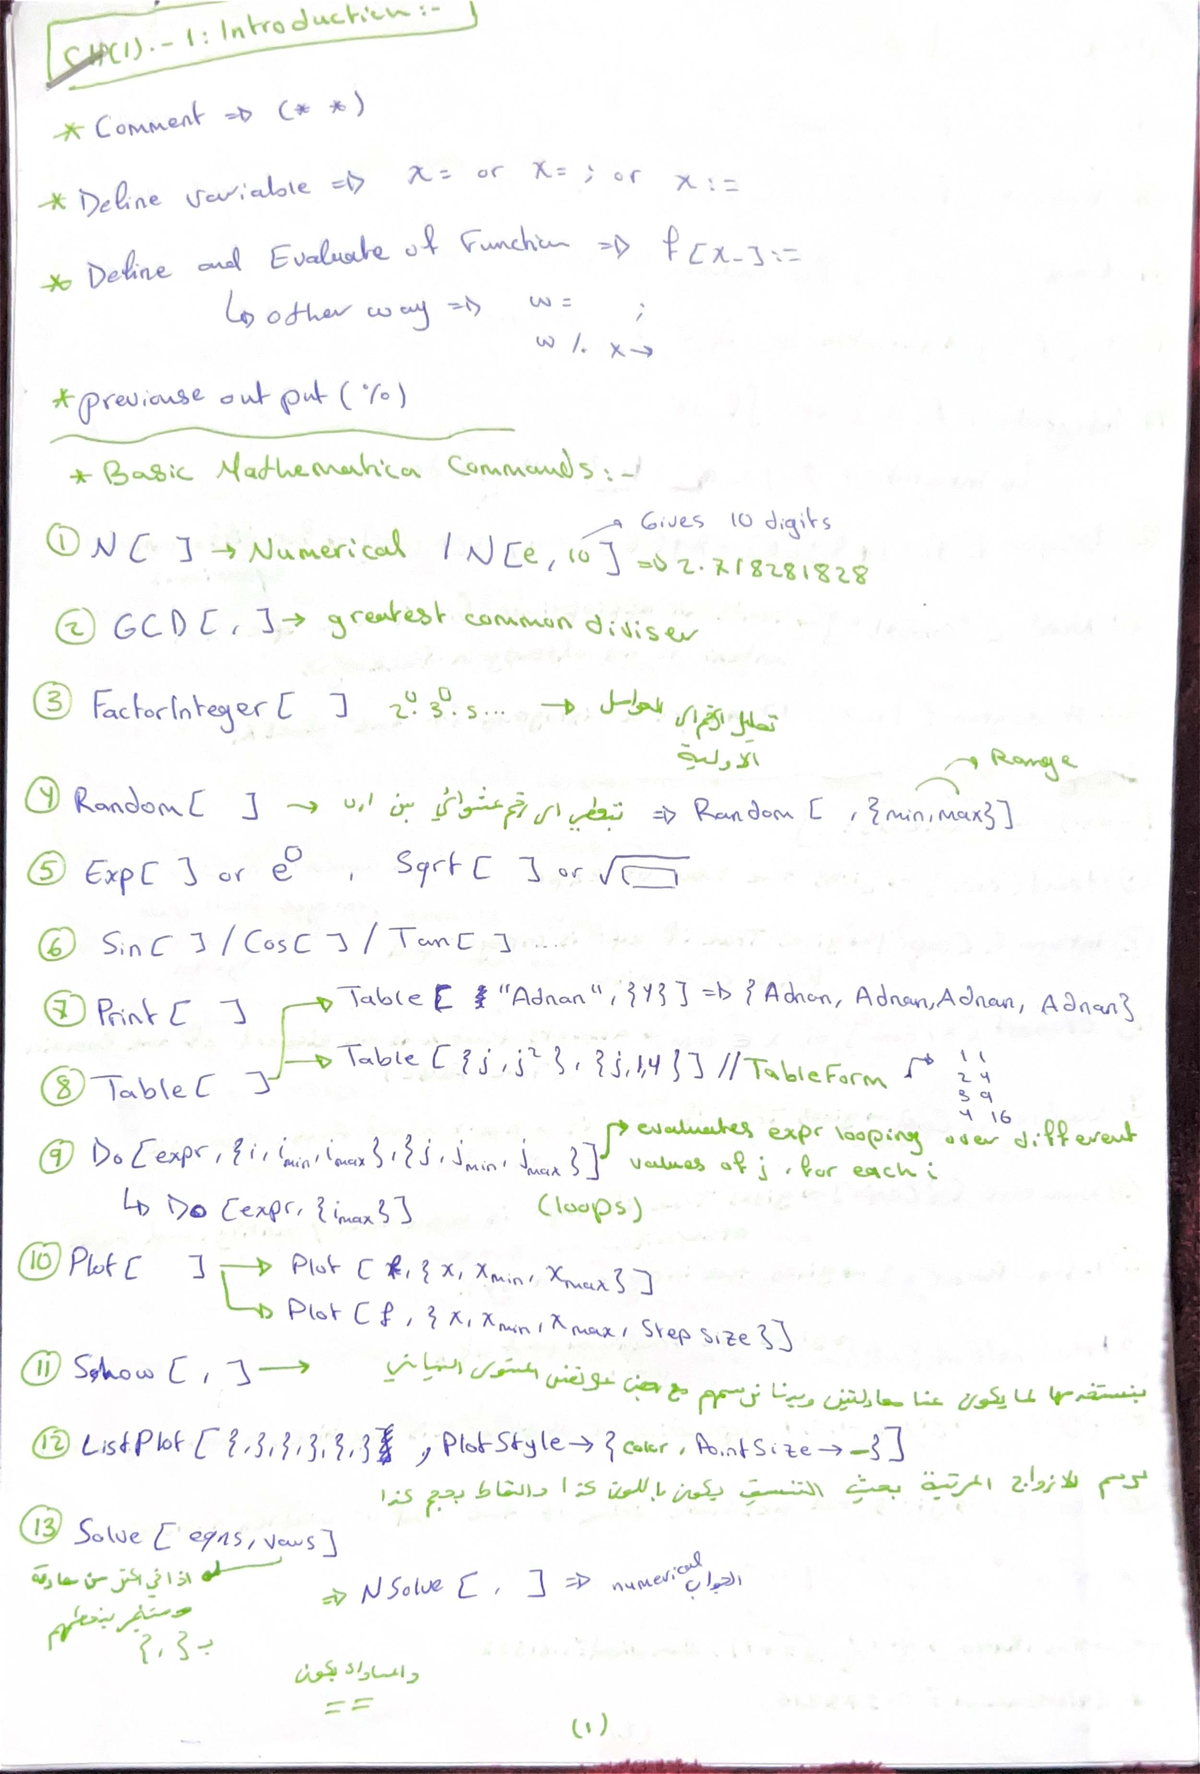 CH(1).-1: Introduction:-
* Comment => (* *)
* Define variable => x= or x= ; or x:=
* Define and Evaluate of Function => f[x_]:=
↳ other way => w= ;
w /. x→
* previouse out put (%)
* Basic Mathematica Commands:-
① N[ ] → Numerical / N[e, 10] => 2.718281828
→ Gives 10 digits
② GCD[ , ] → greatest common diviser
③ FactorInteger[ ] 2. 3. 5... → تحليل الرقم الى العوامل
الأولية
④ Random[ ] → تعطي اي رقم عشوائي بين => Random[ , {min,max}]
→ Range
⑤ Exp[ ] or e , Sqrt[ ] or √
⑥ Sin[ ] / Cos[ ] / Tan[ ] ...
⑦ Print[ ]
→ Table["Adnan", {4}] => {Adnan, Adnan, Adnan, Adnan}
⑧ Table[ ]
→ Table[{j, j²}, {j,1,4}] //TableForm →
1 1
2 4
3 9
4 16
⑨ Do[expr, {i, imin, imax}, {j, jmin, jmax}] → evaluates expr looping over different
values of j, for each i
↳ Do[expr, {imax}] (loops)
⑩ Plot[ ] → Plot[f, {x, xmin, xmax}]
→ Plot[f, {x, xmin, xmax, Step size}]
⑪ Show[ , ] →
بنستخدمها لما يكون عنا معادلتين وبدنا نرسمهم مع بعض على نفس المستوى البياني
⑫ ListPlot[{,},{,},{,}, PlotStyle→{color, PointSize→_}]
نرسم الازواج المرتبة بحيث التنسيق يكون باللون كذا والنقاط بحجم كذا
⑬ Solve[eqns, vars]
اذا في اكثر من معادلة
ومتغير بنحطهم
بـ {,}
=> NSolve[ , ] => numerical الجواب
والمساواة بكون
==
(1)